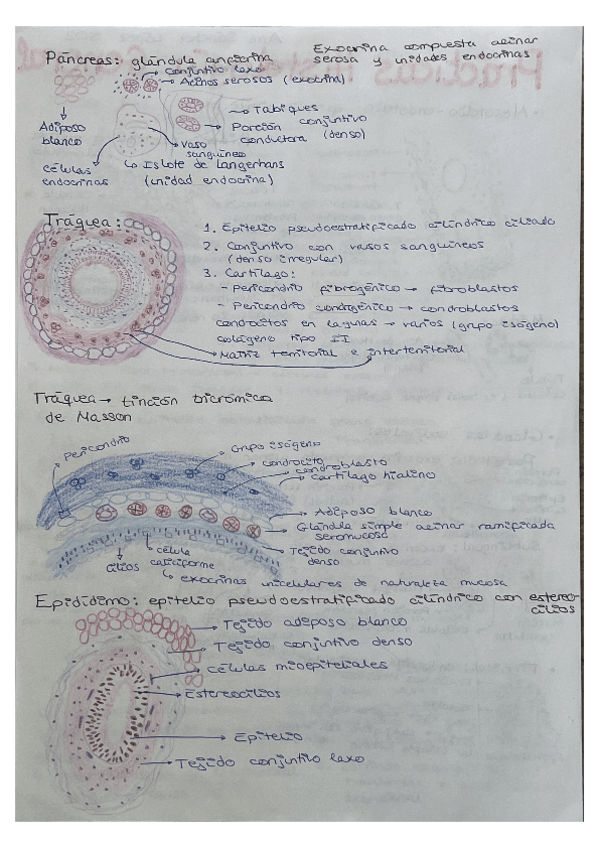 Páncreas: glándula anficrina
Exocrina compuesta acinar
serosa y unidades endocrinas
Conjuntivo laxo
Acinos serosos (exocrina)
Tabiques
Porción conjuntivo
conductora (denso)
Adiposo
blanco
Vaso
sanguíneo
Islote de Langerhans
(unidad endocrina)
Células
endocrinas
Tráquea:
1. Epitelio pseudoestratificado cilíndrico ciliado
2. Conjuntivo con vasos sanguíneos
(denso irregular)
3. Cartílago:
- Pericondrio fibrogénico → fibroblastos
- Pericondrio condrogénico → condroblastos
condrocitos en lagunas → varios (grupo isógeno)
colágeno tipo II
Matriz territorial e interterritorial
Tráquea → tinción tricrómica
de Masson
Pericondrio
Grupo isógeno
condrocito
condroblasto
Cartílago hialino
Adiposo blanco
Glándula simple acinar ramificada
seromucosa
Tejido conjuntivo
denso
cilios
célula
caliciforme
↳ exocrinas unicelulares de naturaleza mucosa
Epidídimo: epitelio pseudoestratificado cilíndrico con estereo-
cilios
Tejido adiposo blanco
Tejido conjuntivo denso
Células mioepiteliales
Estereocilios
Epitelio
Tejido conjuntivo laxo